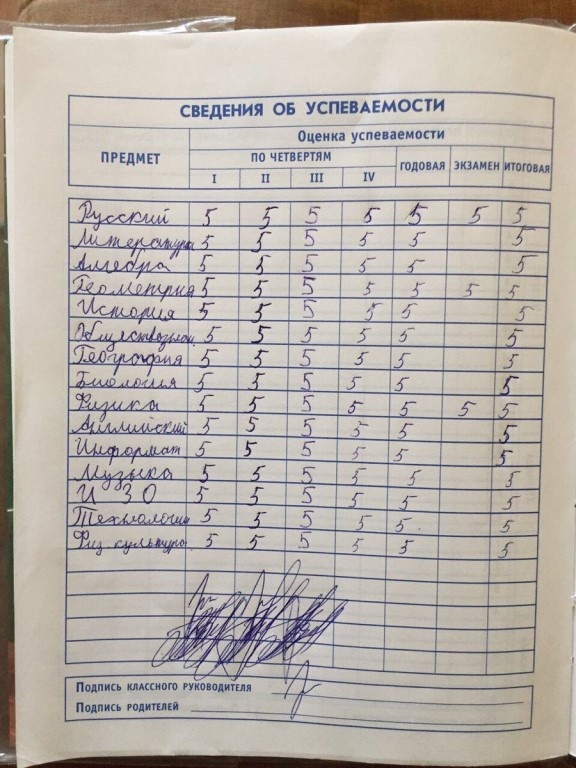 СВЕДЕНИЯ ОБ УСПЕВАЕМОСТИ
ПРЕДМЕТ
Оценка успеваемости
ПО ЧЕТВЕРТЯМ ГОДОВАЯ ЭКЗАМЕН ИТОГОВАЯ
I II III IV
Русский 5 5 5 5 5 5 5
Литература 5 5 5 5 5 5
Алгебра 5 5 5 5 5 5
Геометрия 5 5 5 5 5 5 5
История 5 5 5 5 5 5
Обществознан. 5 5 5 5 5 5
География 5 5 5 5 5 5
Биология 5 5 5 5 5 5
Физика 5 5 5 5 5 5 5
Английский 5 5 5 5 5 5
Информат 5 5 5 5 5 5
Музыка 5 5 5 5 5 5
ИЗО 5 5 5 5 5 5
Технологии 5 5 5 5 5 5
Физ. культура 5 5 5 5 5 5
Подпись классного руководителя
Подпись родителей